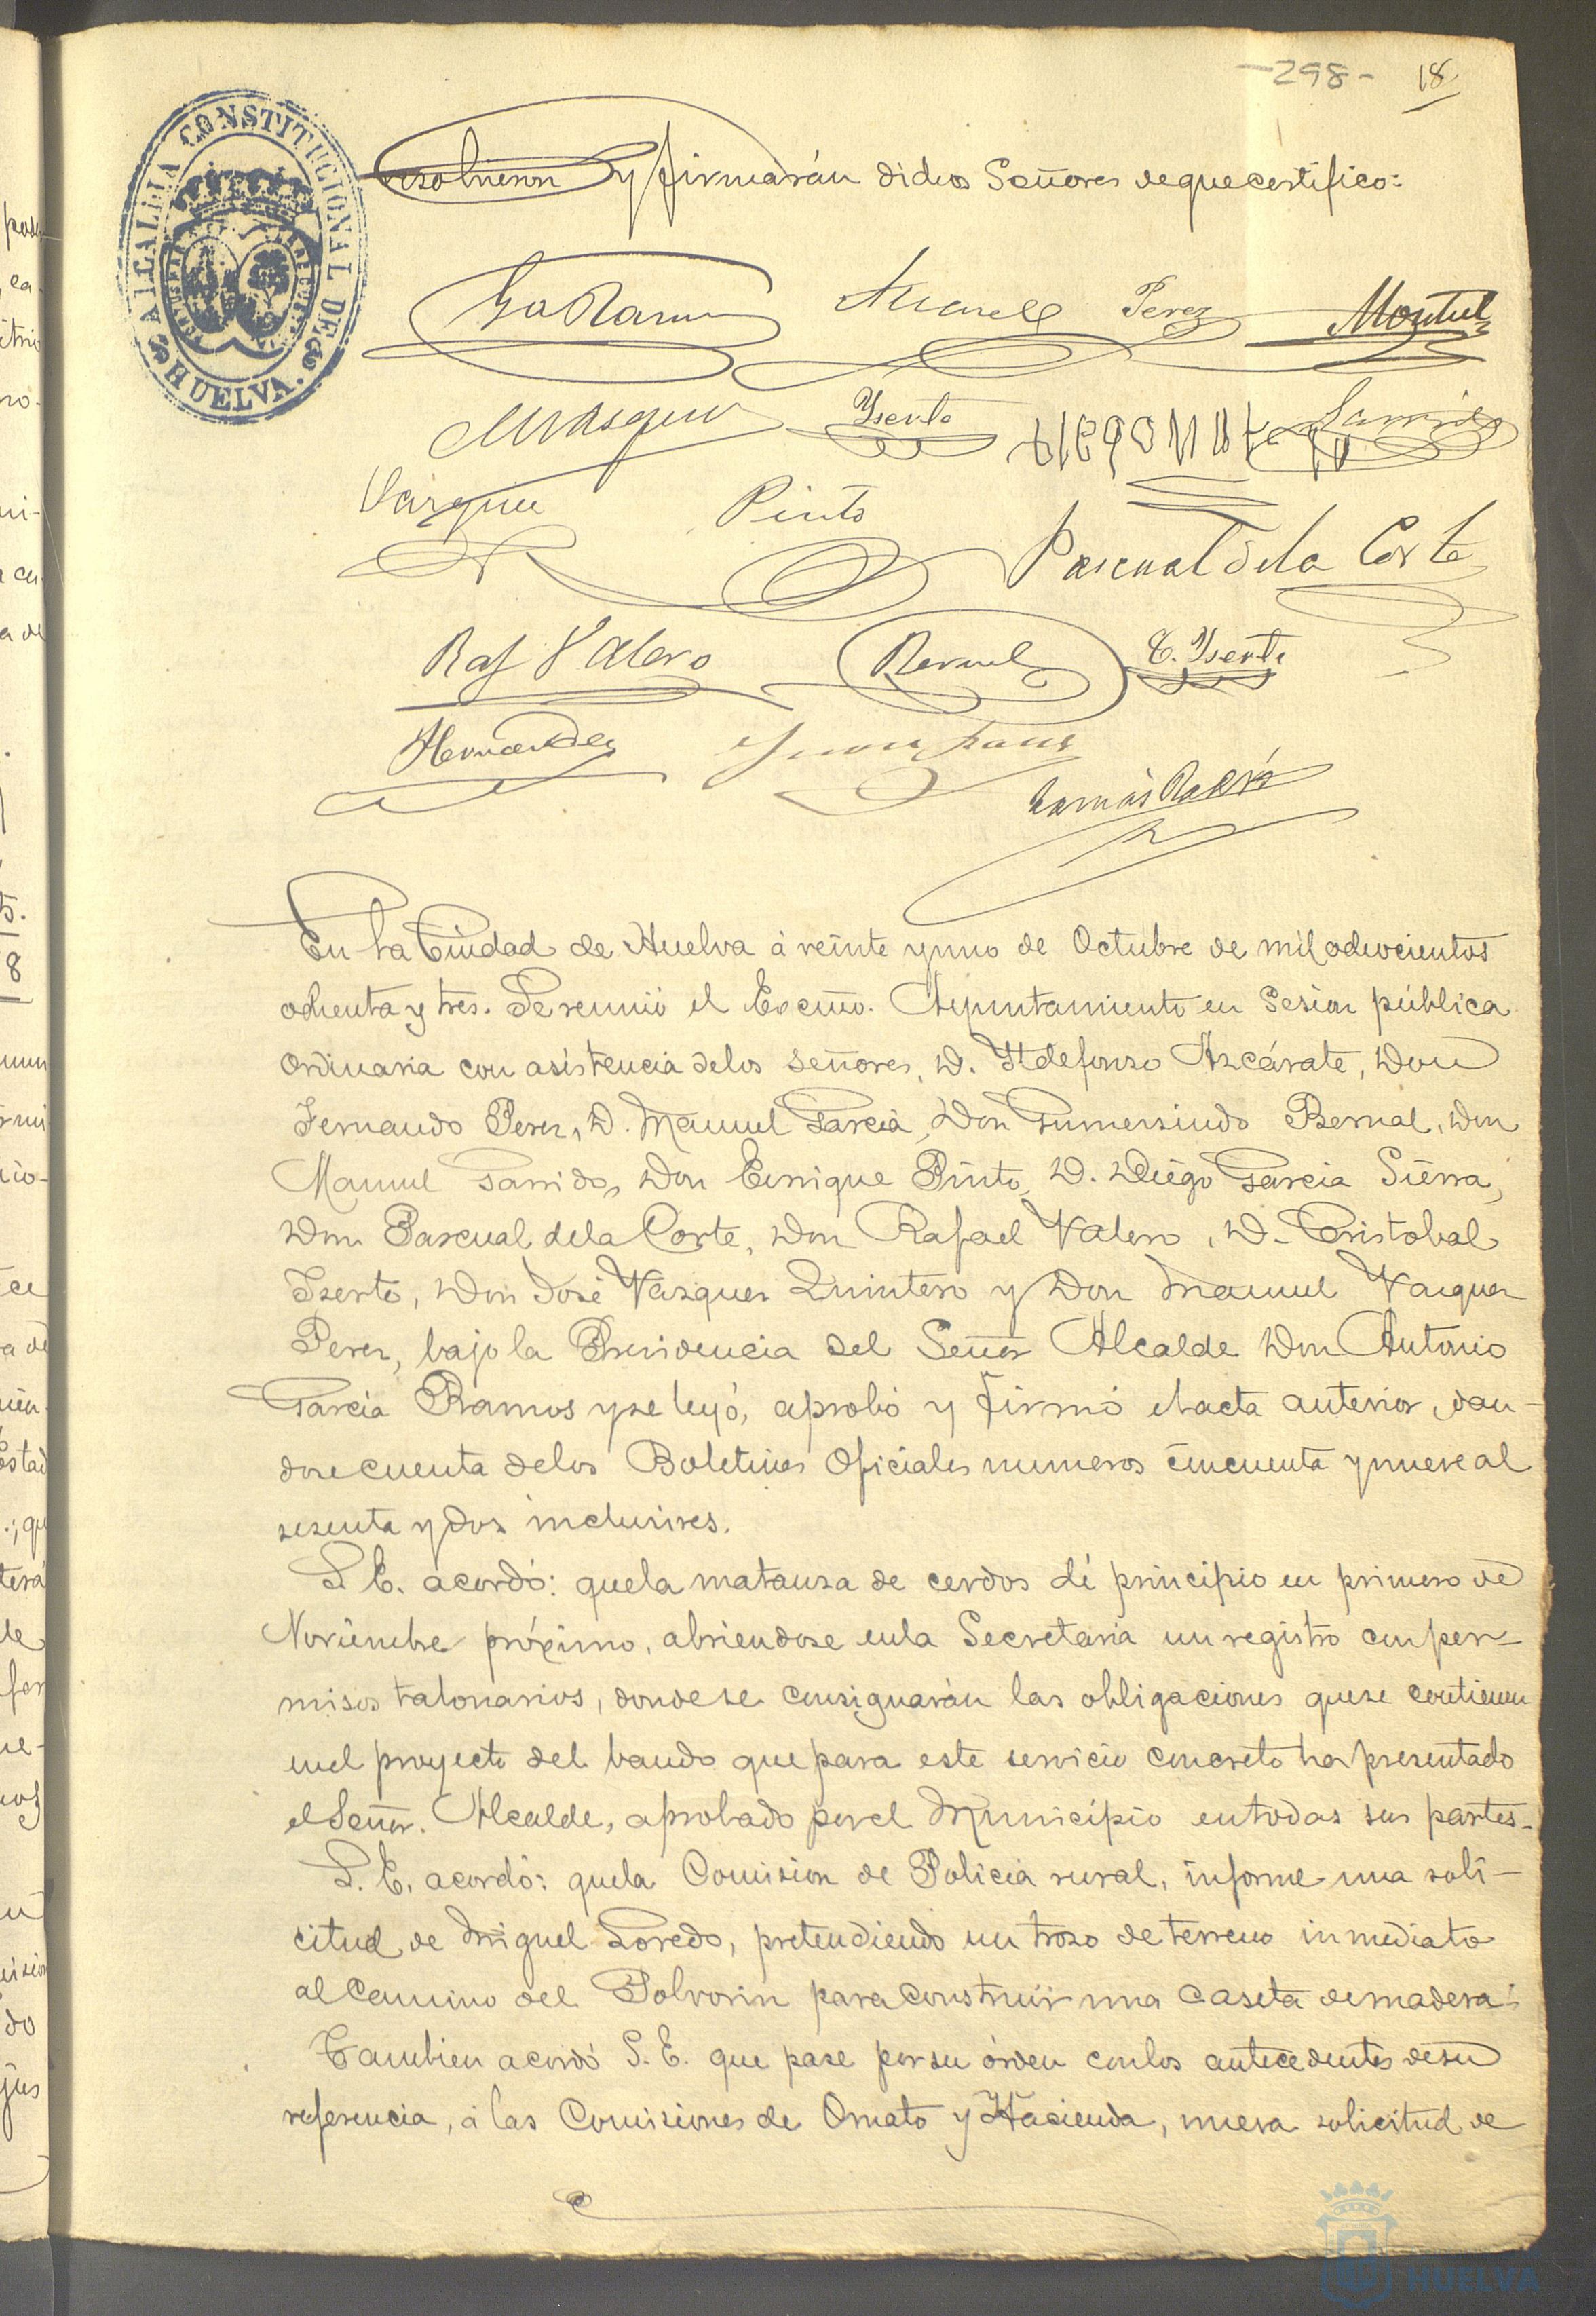 -298- 18
ALCALDIA CONSTITUCIONAL DE HUELVA
resolvieron y firmarán dichos Señores de que certifico:
Gª Ramos Perez Montiel
Yserte Garrido
Vazquez Pinto
Pascual de la Corte
Raf Valero Bernal C. Yserte
Hernandez
Tomás
En la Ciudad de Huelva á veinte y uno de Octubre de mil ochocientos
ochenta y tres. Se reunió el Excmo. Ayuntamiento en Sesion pública
Ordinaria con asistencia de los Señores, D. Ildefonso Azcárate, Don
Fernando Perez, D. Manuel Garcia, Don Gumersindo Bernal, Don
Manuel Garrido, Don Enrique Pinto, D. Diego Garcia Sierra,
Don Pascual de la Corte, Don Rafael Valero, D. Cristobal
Yserte, Don José Vazquez Quintero y Don Manuel Vazquez
Perez, bajo la Presidencia del Señor Alcalde Don Antonio
Garcia Ramos y se leyó, aprobó y firmó el acta anterior, dan-
dose cuenta de los Boletines Oficiales numeros cincuenta y nueve al
sesenta y dos inclusives.
S. E. acordó: que la matanza de cerdos dé principio en primero de
Noviembre próximo, abriendose en la Secretaria un registro con per-
misos talonarios, donde se consignarán las obligaciones que se contienen
en el proyecto del bando que para este servicio concreto ha presentado
el Señor. Alcalde, aprobado por el Municipio en todas sus partes.
S. E. acordó: que la Comision de Policia rural, informe una soli-
citud de Miguel Loredo, pretendiendo un trozo de terreno inmediato
al Camino del Polvorin para construir una Caseta de madera.
Tambien acordó S. E. que pase por su órden con los antecedentes de su
referencia, á las Comisiones de Ornato y Hacienda, nueva solicitud de
HUELVA